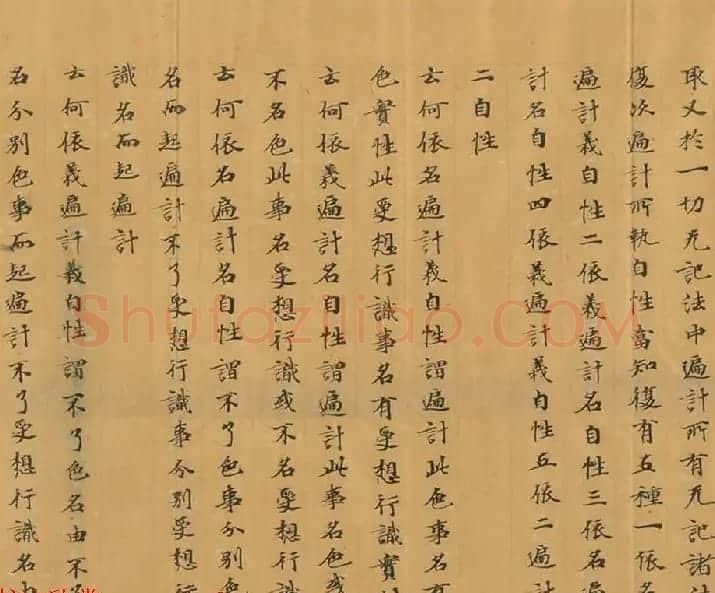 取又於一切无記法中遍計所有无記諸法
復次遍計所執自性當知復有五種一依名
遍計義自性二依義遍計名自性三依名遍
計名自性四依義遍計義自性五依二遍計
二自性
云何依名遍計義自性謂遍計此色事名有
色實性此受想行識事名有受想行識實
云何依義遍計名自性謂遍計此事名色或
不名色此事名受想行識或不名受想行識
云何依名遍計名自性謂不了色事分別色
名而起遍計不了受想行識事分別受想行
識名而起遍計
云何依義遍計義自性謂不了色名由不
名分別色事而起遍計不了受想行識名由
Shufaziliao.COM